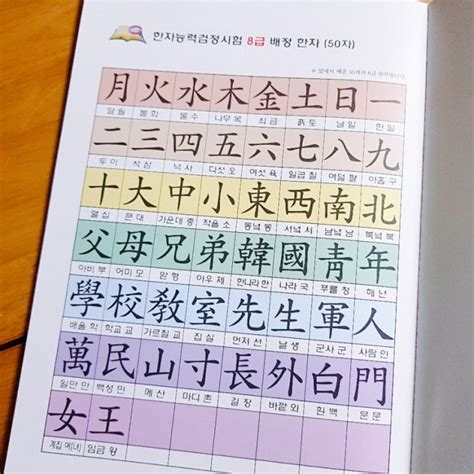 한자능력검정시험 8급 배정 한자 (50자)
月火水木金土日一
달 월 불 화 물 수 나무 목 쇠 금 흙 토 날 일 한 일
二三四五六七八九
두 이 석 삼 넉 사 다섯 오 여섯 육 일곱 칠 여덟 팔 아홉 구
十大中小東西南北
열 십 큰 대 가운데 중 작을 소 동녘 동 서녘 서 남녘 남 북녘 북
父母兄弟韓國靑年
아비 부 어미 모 맏 형 아우 제 한나라 한 나라 국 푸를 청 해 년
學校敎室先生軍人
배울 학 학교 교 가르칠 교 집 실 먼저 선 날 생 군사 군 사람 인
萬民山寸長外白門
일만 만 백성 민 메 산 마디 촌 길 장 바깥 외 흰 백 문 문
女王
계집 녀(여) 임금 왕